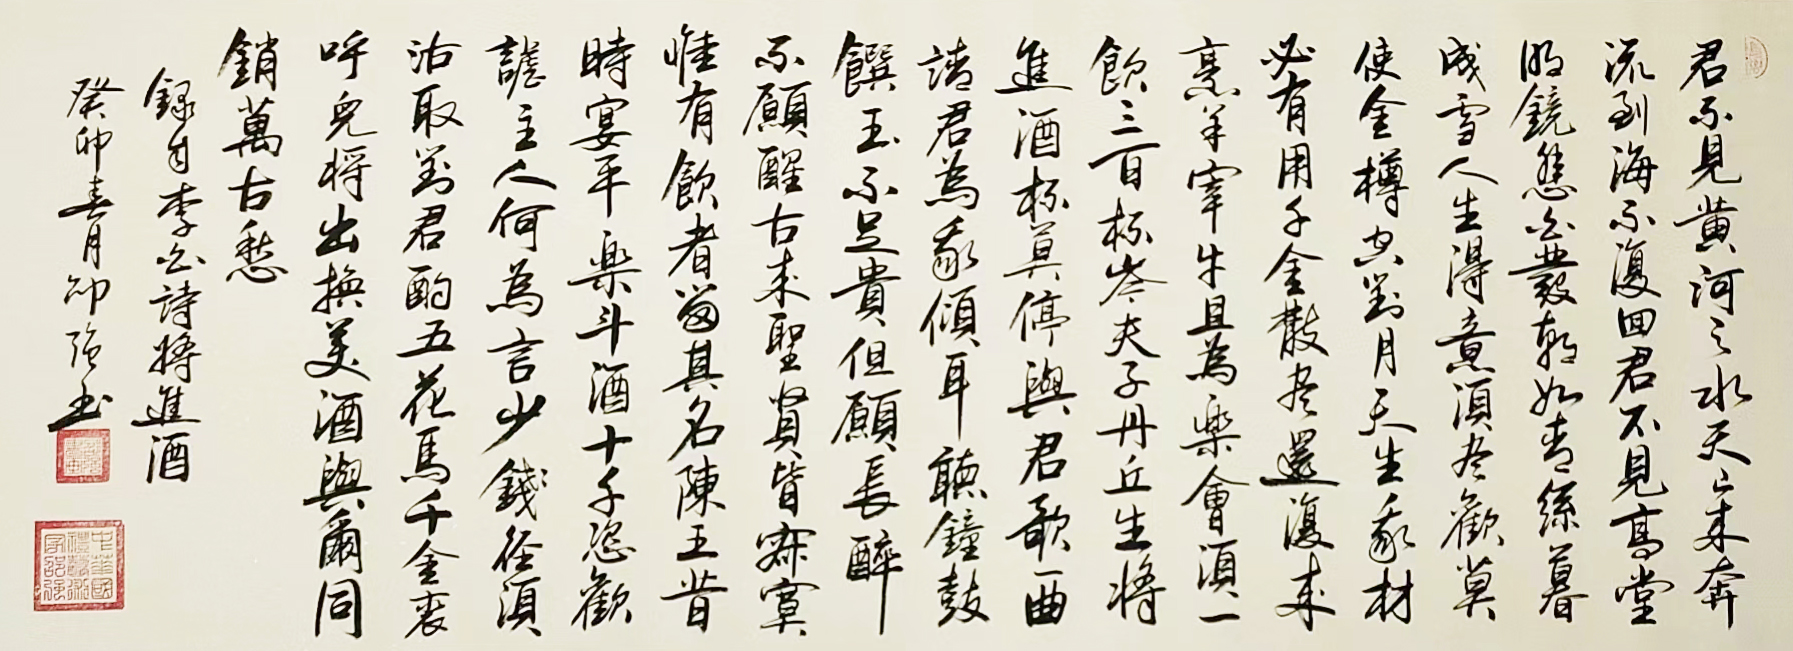 君不見黄河之水天上来奔
流到海不復回君不見高堂
明鏡悲白發朝如青絲暮
成雪人生得意須尽歡莫
使金樽空對月天生我材
必有用千金散尽還復来
烹羊宰牛且為樂會須一
飲三百杯岑夫子丹丘生將
進酒杯莫停與君歌一曲
請君為我傾耳聽鐘鼓
饌玉不足貴但願長醉
不願醒古来聖賢皆寂寞
惟有飲者留其名陳王昔
時宴平樂斗酒十千恣歡
謔主人何為言少錢徑須
沽取對君酌五花馬千金裘
呼兒將出換美酒與爾同
銷萬古愁
錄自李白詩將進酒
癸卯春月邵強書
中華國
禮藝術
家邵強